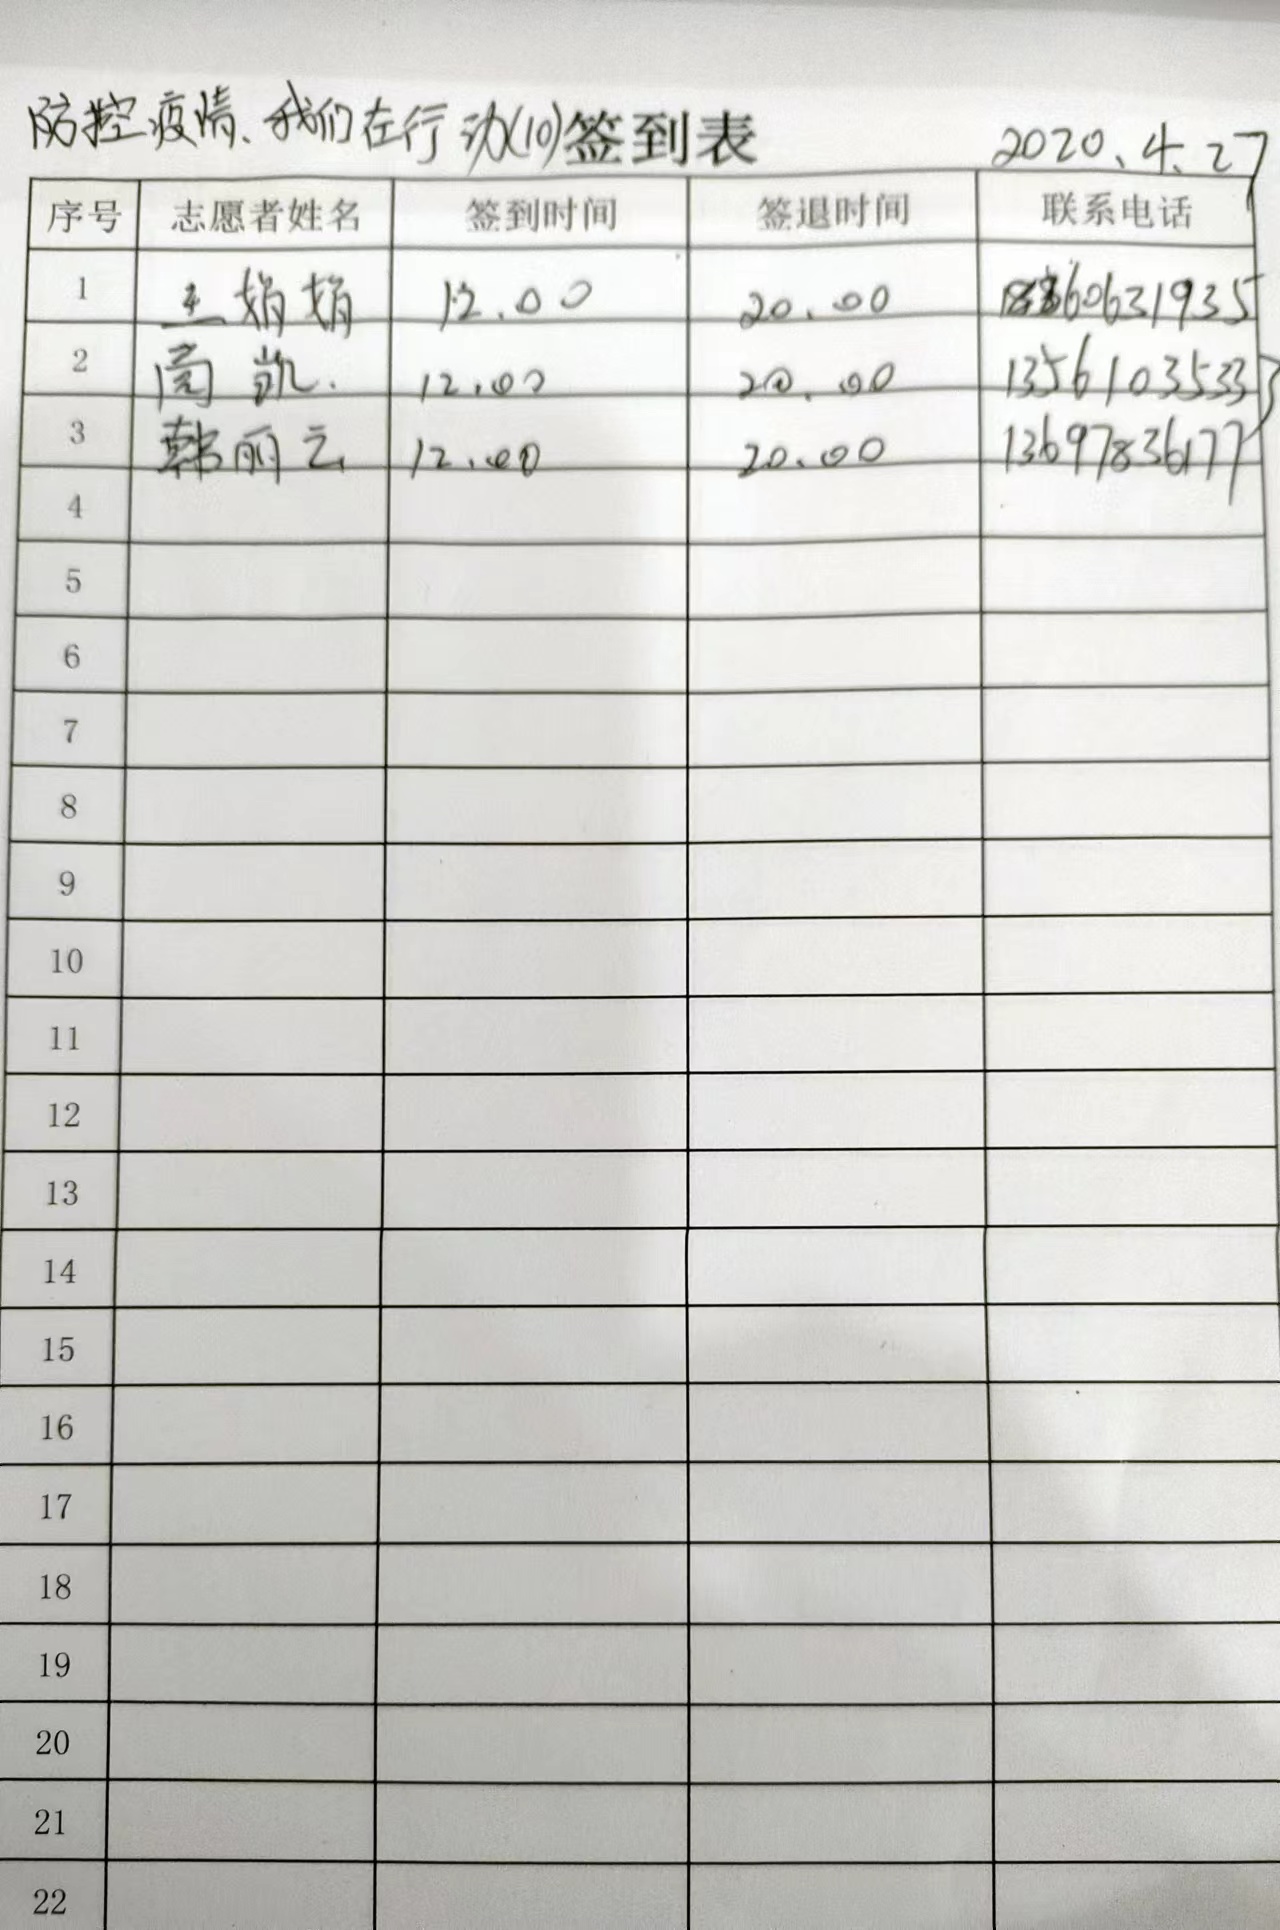 防控疫情、我们在行动(10)签到表 2020.4.27
序号 志愿者姓名 签到时间 签退时间 联系电话
1 王娟娟 12.00 20.00 60631935
2 凯. 12.00 20.00 13561035333
3 韩丽云 12.00 20.00 13697836177
4
5
6
7
8
9
10
11
12
13
14
15
16
17
18
19
20
21
22